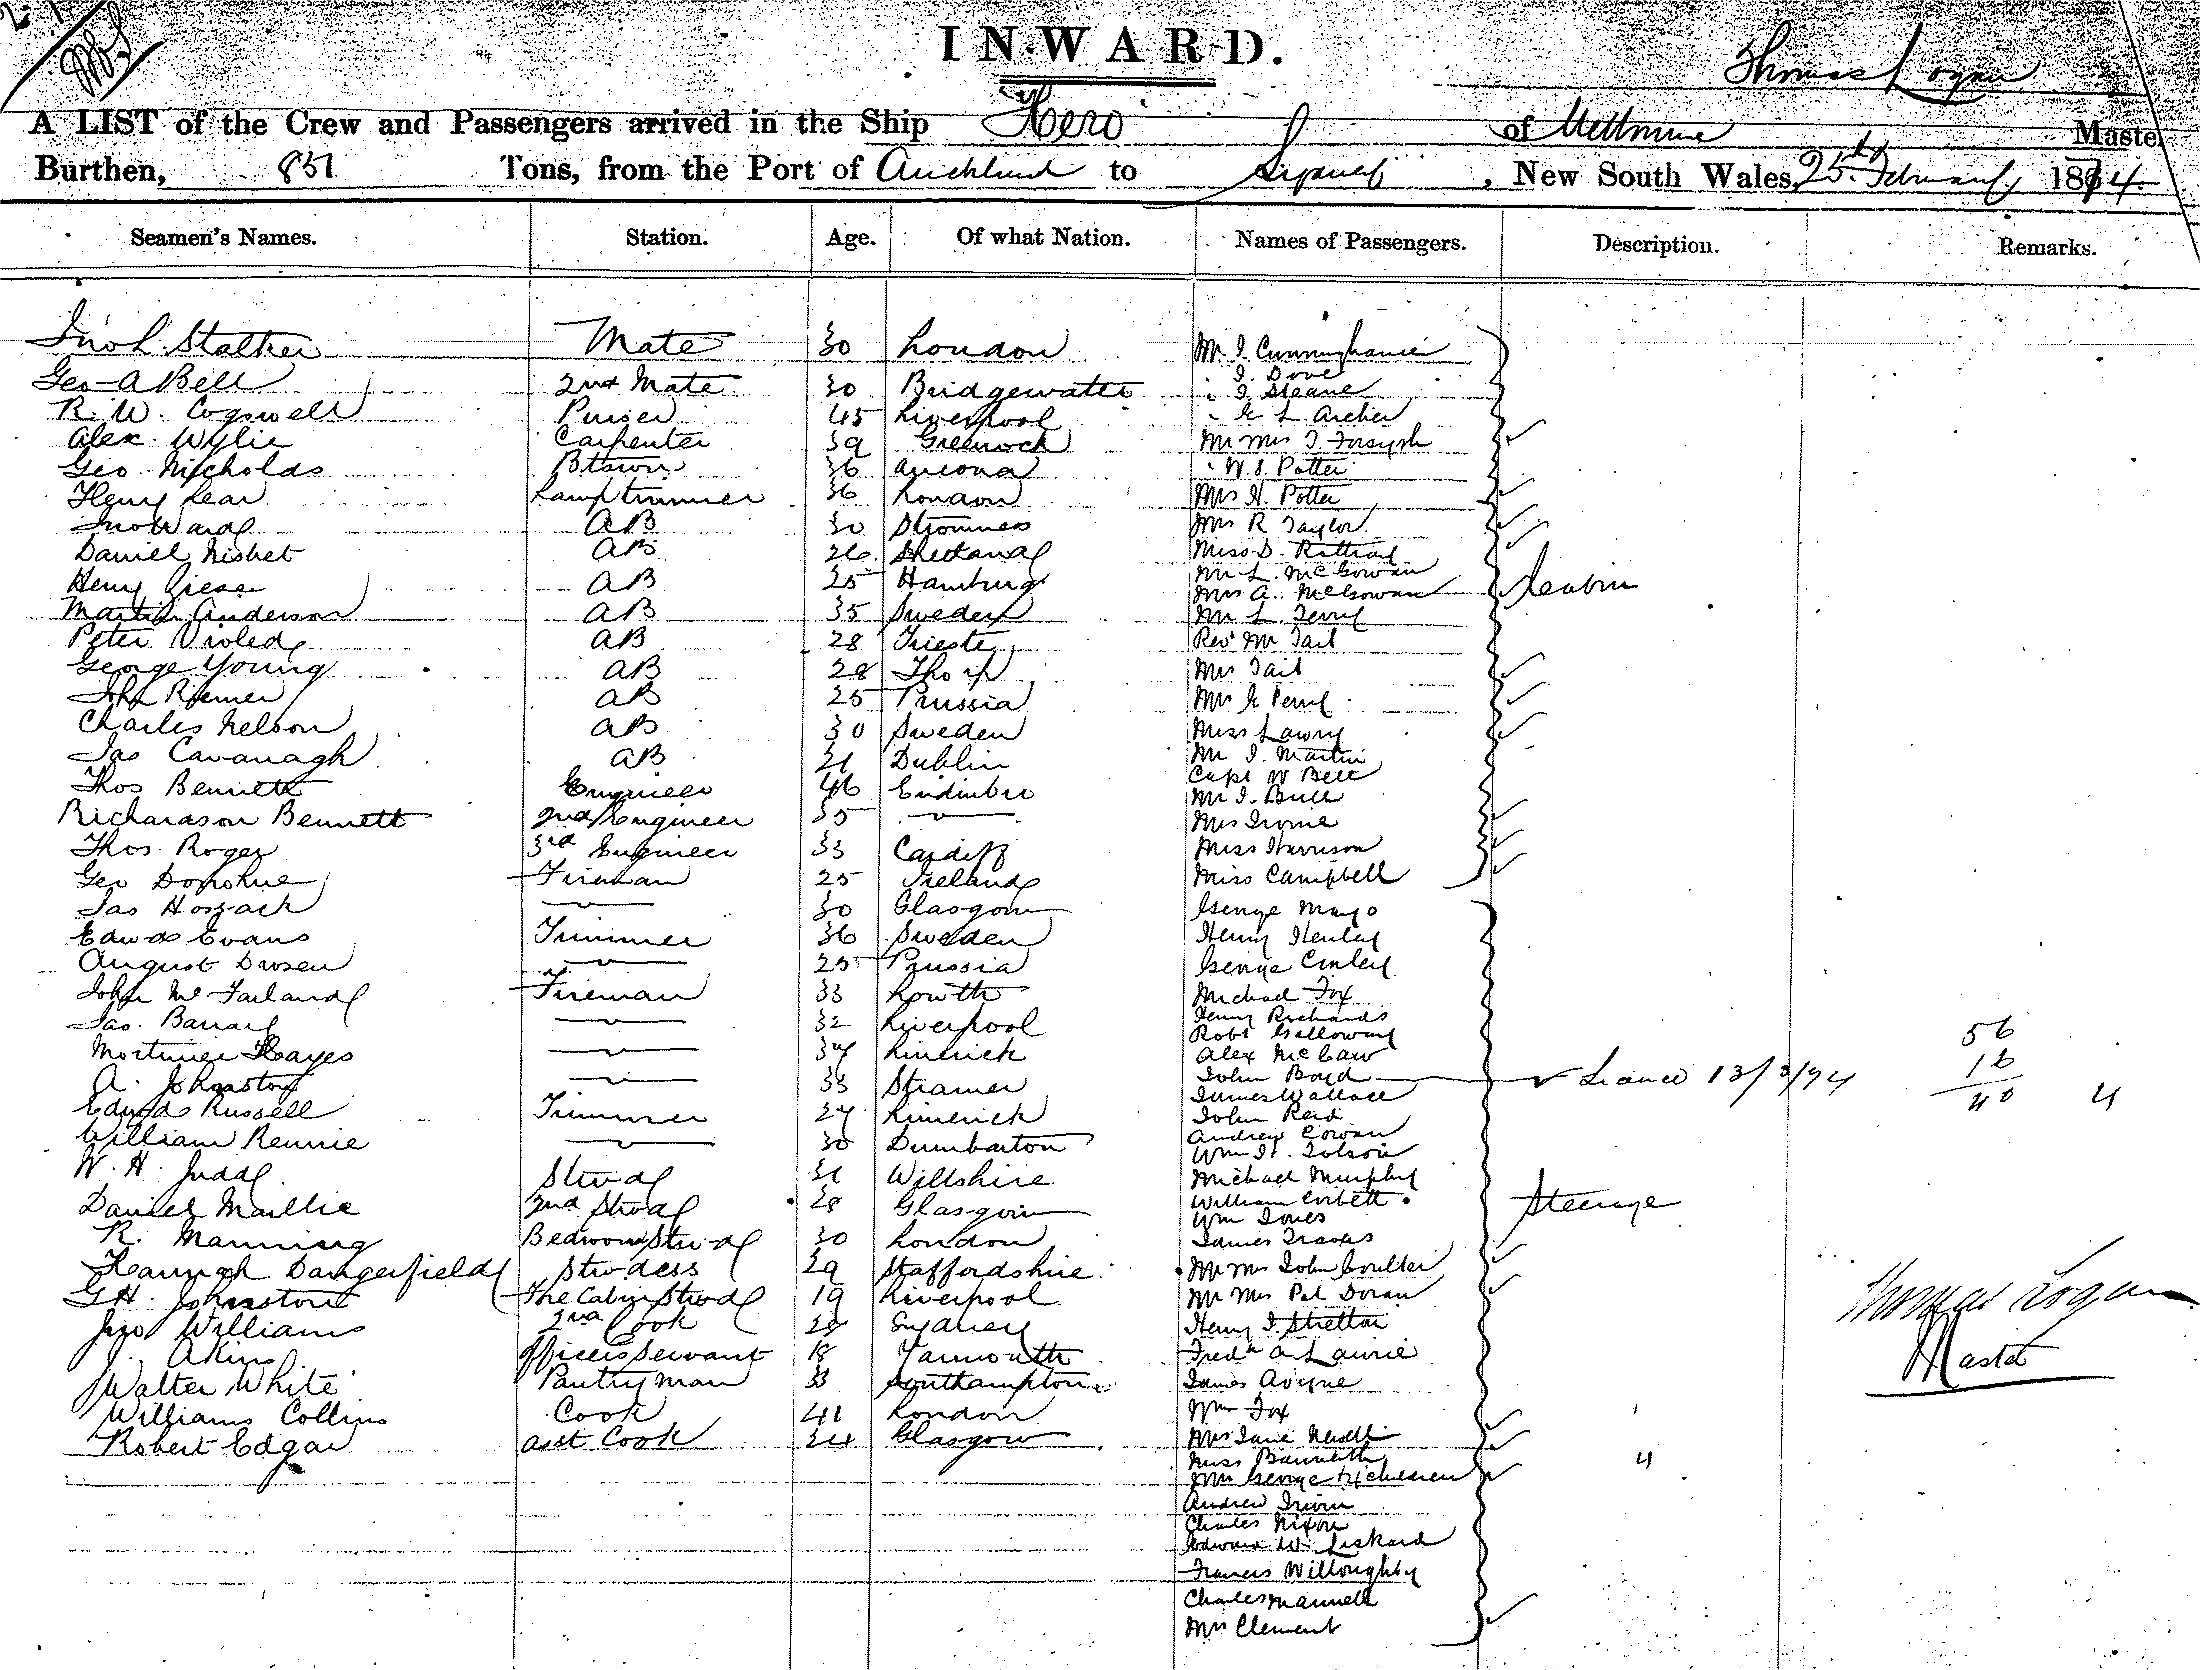 INWARD.
Thomas Logan
A LIST of the Crew and Passengers arrived in the Ship "Hero" of Melbourne Master
Burthen, 851 Tons, from the Port of Auckland to Sydney, New South Wales, 25th February 1874.
Seamen's Names. Station. Age. Of what Nation. Names of Passengers. Description. Remarks.
Stalker Mate 30 London Mr J. Cunninghame
Geo A Bell 2nd Mate 30 Bridgewater " J. Dove
" J. Sloane
R. W. Cogswell Purser 45 Liverpool " L Archer
Alex Wylie Carpenter 39 Greenock Mr Mrs J. Forsyth
Geo Nicholds Btswn 36 Ancona " W. J. Potter
Henry Lear Lamptrimmer 36 London Mrs H. Potter
Jno Ward AB 30 Stromness Mrs R Taylor
Daniel Nisbet AB 26 Shetland Miss D.
Mr L. McGowan
Henry AB 25 Hamburg Mrs A. McGowan Cabin
Martin Anderson AB 35 Sweden Mr L.
Peter AB 28 Trieste Revd Mr Tait
George Young AB 28 Mrs Tait
Riemer AB 25 Prussia Mrs
Charles Nelson AB 30 Sweden Miss Lawry
Mr J. Martin
Jas Cavanagh AB 21 Dublin Capt W Bell
Thos Bennett Engineer 46 Endinbro Mr J. Bull
Richardson Bennett 2nd Engineer 35 " Mrs Irvine
Thos Roger 3rd Engineer 33 Cardiff Miss Harrison
Geo Donohue Fireman 25 Ireland Miss Campbell
Jas Hossack " 30 Glasgow George Mayo
Edwd Evans Trimmer 36 Sweden Henry Henley
August Drosen " 25 Prussia George
John McFarland Fireman 33 Lowth Michael Fox
Henry Richards
Jas. Barrad " 32 Liverpool Robt Galloway 56
Mortimer Hayes " 34 Limerick Alex McCaw 16
A. Johnston " 33 John Boyd 13/3/74 40 4
James Wallace
Edwd Russell Trimmer 27 Limerick John Reid
Andrew Cowan
William Rennie " 30 Dumbarton Wm H. Tolson
W. H. Judd Stwd 31 Wiltshire Michael Murphy
Daniel Maillie 2nd Stwd 28 Glasgow William Corbett Steerage
Wm Jones
R. Manning Bedroom Stwd 30 London James Travis
Hannah Dangerfield Stwdess 29 Staffordshire Mr Mrs John Coulter
G H. Johnston Fore Cabin Stwd 19 Liverpool Mr Mrs Pat Doran Thomas Logan
Jno Williams 2nd Cook 28 Sydney Henry J. Stretton
J. Akins Officers Servant 18 Yarmouth Fredk A Laurie Master
Walter White Pantryman 33 Southampton James
Williams Collins Cook 41 London Wm Fox
Robert Edgar asst Cook 34 Glasgow Mrs Jane
Miss 4
Mrs George & children
Andrew Irvin
Charles Nixon
Edward W. Liskard
Francis Willoughby
Charles Mannell
Mrs Clement